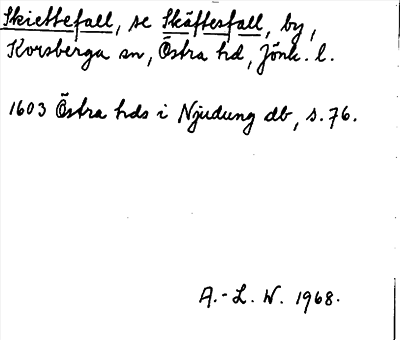 Skiettefall, se Skäftesfall, by,
Korsberga sn, Östra hd, Jönk. l.
1603 Östra hds i Njudung db, s. 76.
A.-L. W. 1968.